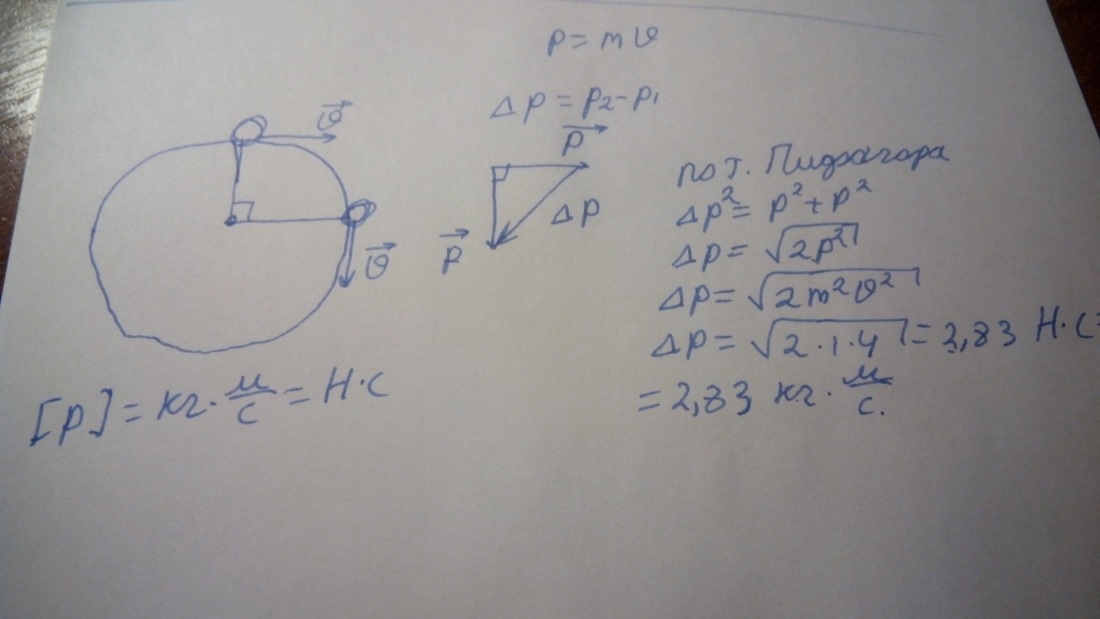 p = mυ
Δp = p₂ - p₁
υ⃗
υ⃗
p⃗
Δp
p⃗
по т. Пифагора
Δp² = p² + p²
Δp = √2p²
Δp = √2m²υ²
Δp = √2·1·4 = 2,83 Н·с =
= 2,83 кг · м/с.
[p] = кг · м/с = Н·с